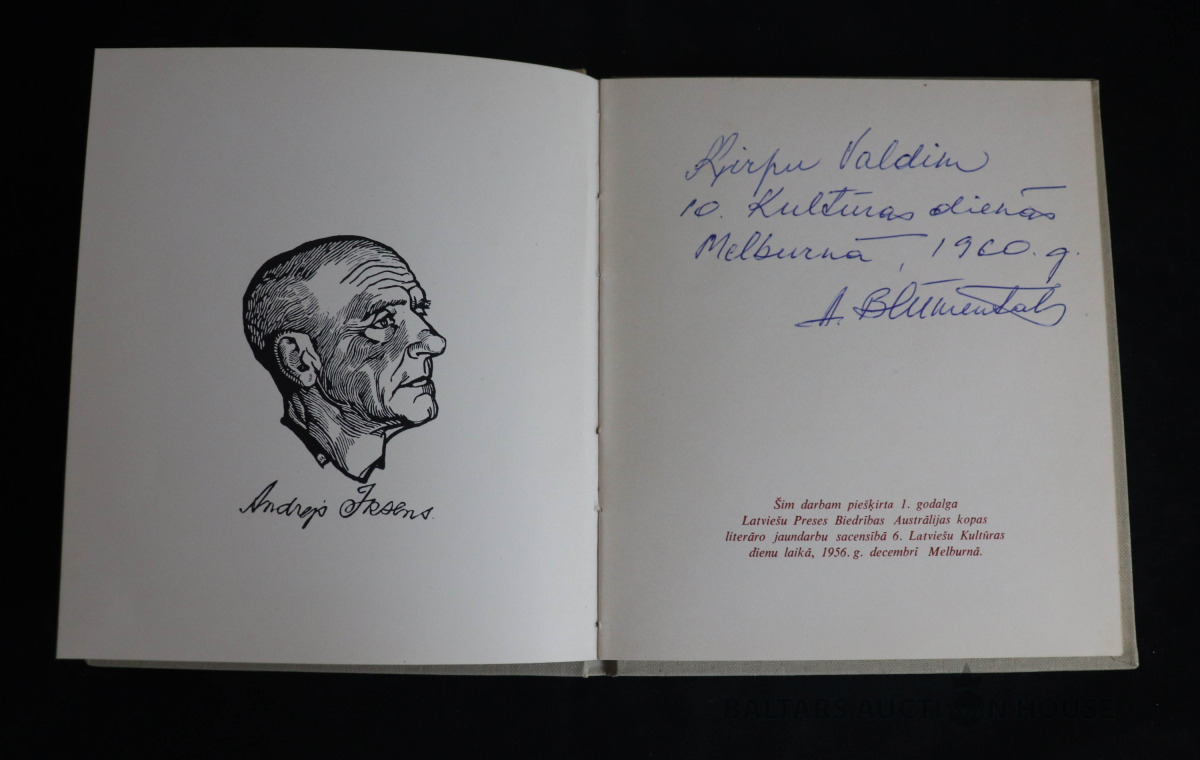 Andrejs Irsens.
Ķirpu Valdim
10. Kultūras dienās
Melburnā, 1960. g.
A. Blūmentals
Šim darbam piešķirta 1. godalga
Latviešu Preses Biedrības Austrālijas kopas
literāro jaundarbu sacensībā 6. Latviešu Kultūras
dienu laikā, 1956. g. decembrī Melburnā.
BALTARS AUCTION HOUSE